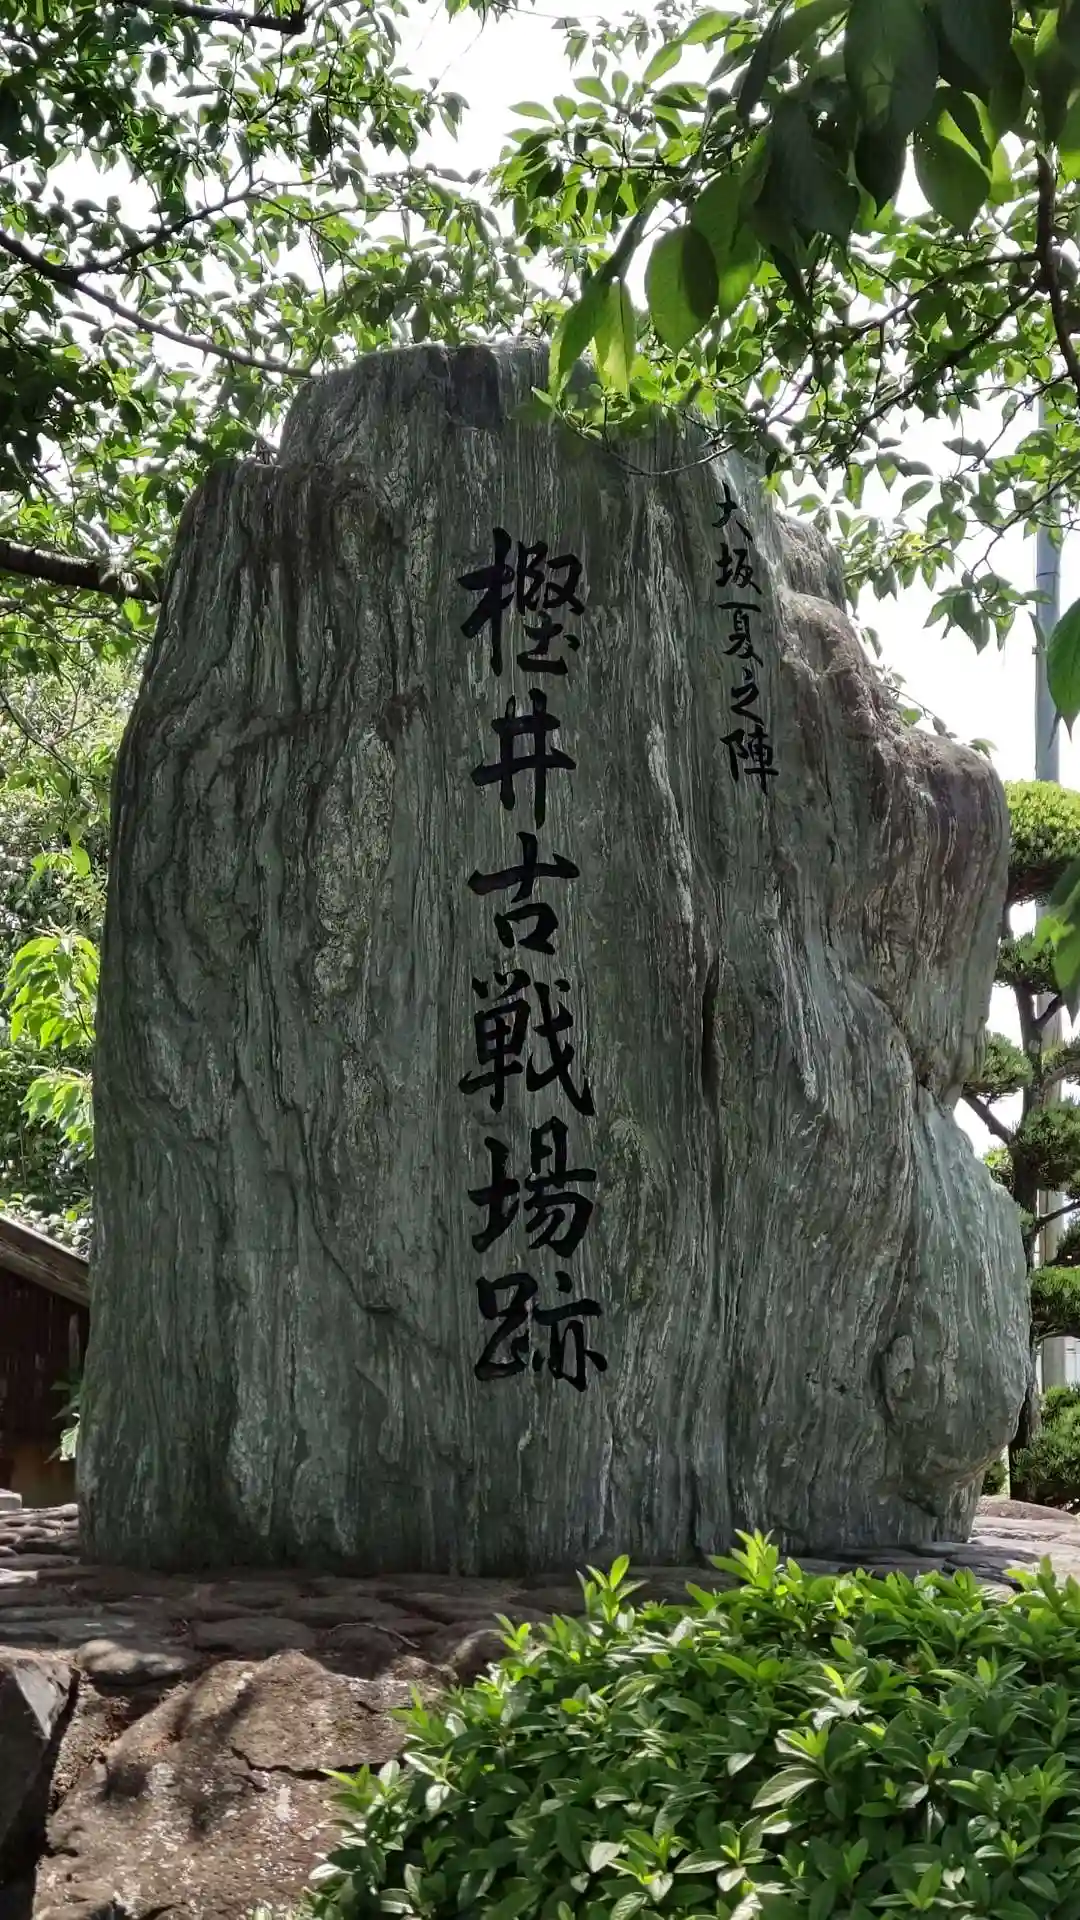 大坂夏之陣
樫井古戦場跡